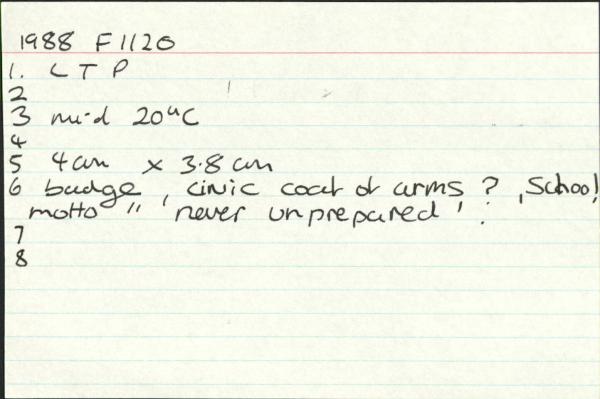 1988 F1120
1. L T P
2
3 mid 20th C
4
5 4cm x 3.8cm
6 badge, civic coat of arms ?, School
motto " never unprepared' .
7
8